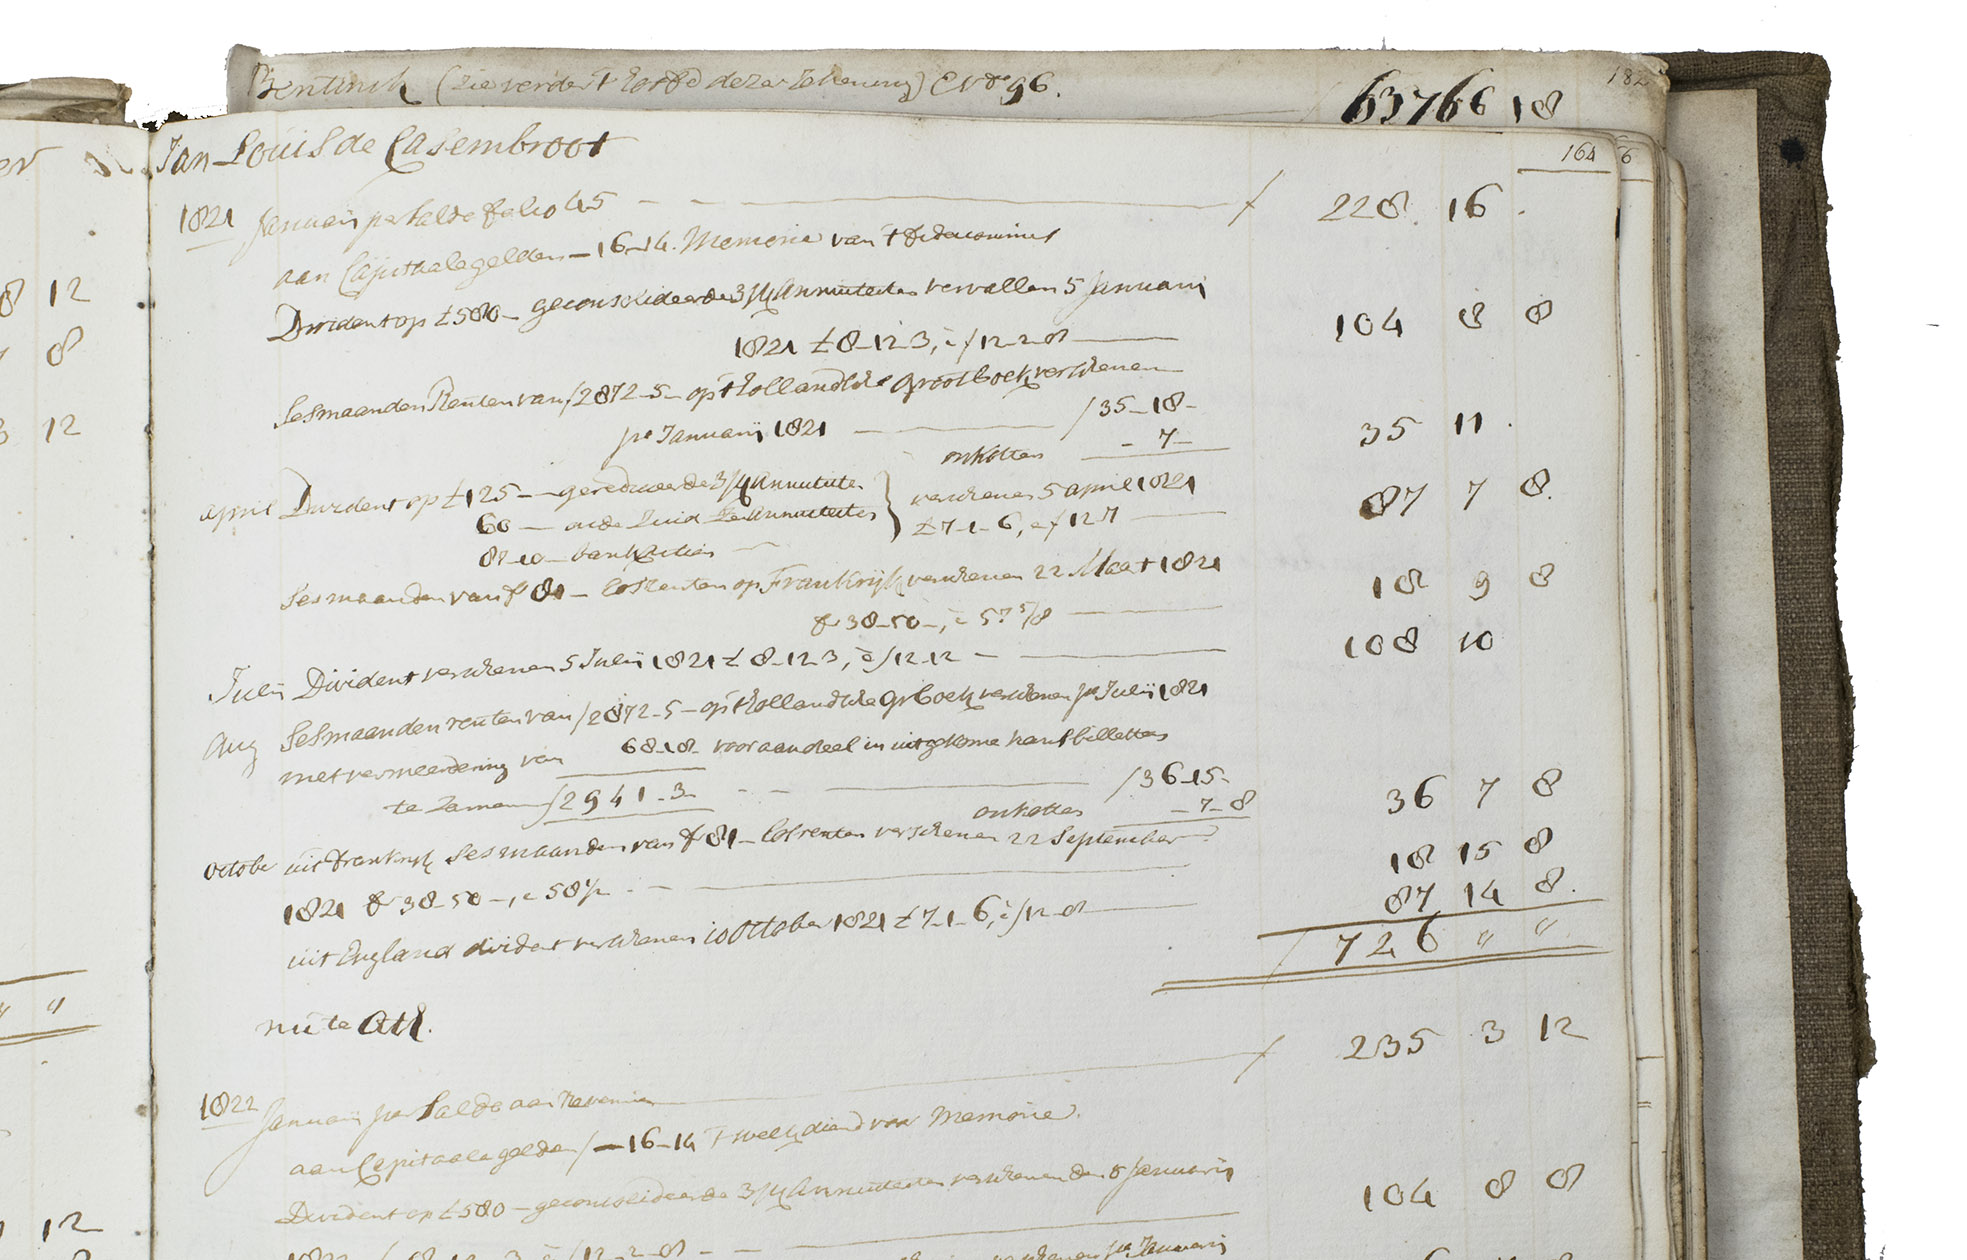 Bentinck (zie verder 't hoofd dezer Rekening) No 96.
182
63766 18
Jan Louis de Casembroot
164
6
1821 Januarij per Saldo folio 45 — — / 228 16 .
aan Capitaale gelden — 16-14. Memorie van 't fidecommis
Dividend op £ 580 — geconsolideerde 3 pC Annuiteiten vervallen 5 Januarij
1821 £ 8-12-3, à f 12-2-8 — 104 8 8
Sesmaanden Renten van f 2872-5- op 't Hollandsche Grootboek verschenen
po Januarij 1821 — f 35-18-
onkosten - 7- 35 11 .
april Divident op £ 125 — gereduceerde 3 pC Annuiteiten
60 — oude Zuid Zee Annuiteiten
82-10 — bank Actien
verschenen 5 april 1821
£ 7-1-6, à f 12 7 — 87 7 8.
Sesmaanden van fr 81 — Losrenten op Frankrijk verschenen 22 Maart 1821
fr 38-50-, à 57 5/8 — 18 9 8
Julij Divident verschenen 5 Julij 1821 £ 8-12-3, à f 12-12 — 108 10
Aug Sesmaanden renten van f 2872-5- op 't Hollandsche Gr Boek verschenen po Julij 1821
met vermeerdering van 68-18- voor aandeel in uitgekome kansbilletten
te Zamen f 2941-3- — f 36-15-
onkosten - 7-8 36 7 8
October uit Frankrijk Sesmaanden van fr 81 — Losrenten verschenen 22 September
1821 fr 38-50-, à 58 1/2 — 18 15 8
uit Engeland divident verschenen 10 October 1821 £ 7-1-6, à f 12-8 — 87 14 8.
/ 726 " "
nu te
/ 235 3 12
1822 Januarij per Saldo aan Revenuen
aan Capitaale gelden f — 16-14 't welk diend voor Memorie.
Dividend op £ 580 — geconsolideerde 3 pC Annuiteiten verschenen den 5 Januarij
104 8 8
1822 £ 8-12-3 à f 12-2-8 -
verschenen po Januarij
8 12
8
3 12
" "
12